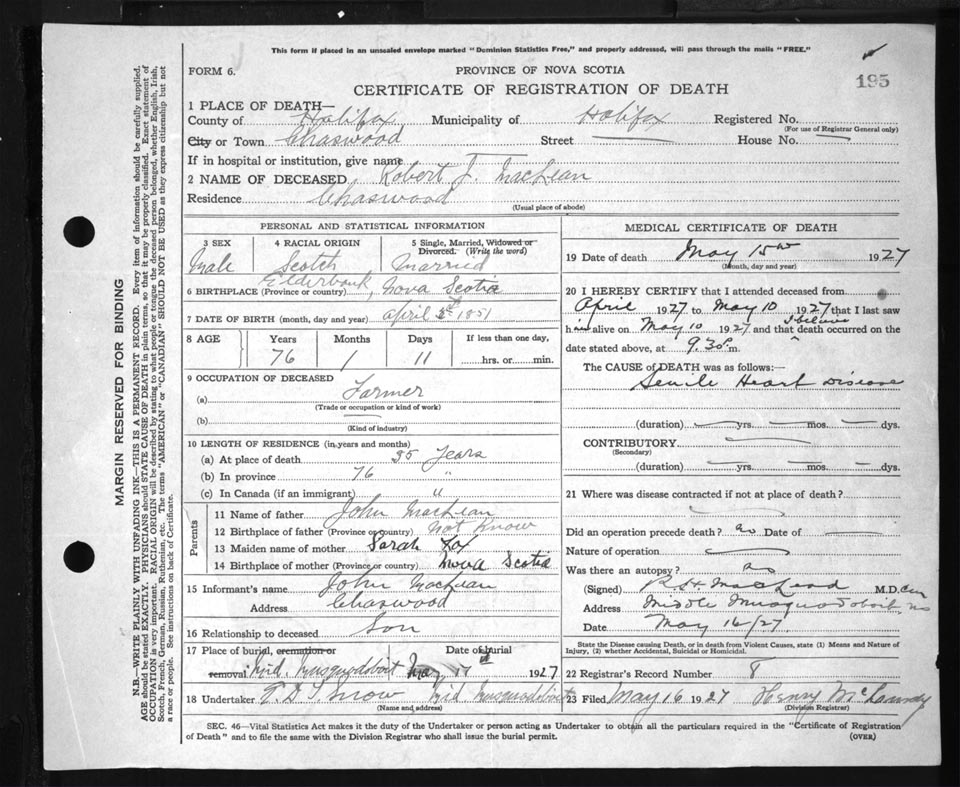 This form if placed in an unsealed envelope marked "Dominion Statistics Free," and properly addressed, will pass through the mails "FREE."
FORM 6.
PROVINCE OF NOVA SCOTIA
195
CERTIFICATE OF REGISTRATION OF DEATH
1 PLACE OF DEATH—
County of Halifax Municipality of Halifax Registered No.
(For use of Registrar General only)
City or Town Chaswood Street — House No. —
If in hospital or institution, give name —
2 NAME OF DECEASED Robert J. MacLean
Residence Chaswood
(Usual place of abode)
PERSONAL AND STATISTICAL INFORMATION
3 SEX 4 RACIAL ORIGIN 5 Single, Married, Widowed or Divorced. (Write the word)
Male Scotch Married
Elderbank,
6 BIRTHPLACE (Province or country) Nova Scotia
7 DATE OF BIRTH (month, day and year) April 1851
8 AGE Years Months Days If less than one day,
76 1 11 ......hrs. or ......min.
9 OCCUPATION OF DECEASED
(a) Farmer
(Trade or occupation or kind of work)
(b) —
(Kind of industry)
10 LENGTH OF RESIDENCE (in years and months)
(a) At place of death 35 Years
(b) In province 76 "
(c) In Canada (if an immigrant) "
Parents
11 Name of father John MacLean
12 Birthplace of father (Province or country) Not Know
13 Maiden name of mother Sarah Fox
14 Birthplace of mother (Province or country) Nova Scotia
15 Informant's name John MacLean
Address Chaswood
16 Relationship to deceased Son
17 Place of burial, cremation or removal Mid. Musquodoboit Date of burial May 17th 1927
18 Undertaker Snow Mid. Musquodoboit
(Name and address)
MEDICAL CERTIFICATE OF DEATH
19 Date of death May 15th 1927
(Month, day and year)
20 I HEREBY CERTIFY that I attended deceased from
April 1927 to May 10 1927 that I last saw
him alive on May 10 1927 and that I believe death occurred on the
date stated above, at 9.30 P.m.
The CAUSE of DEATH was as follows:
Senile Heart Disease
(duration) — yrs. — mos. — dys.
CONTRIBUTORY —
(Secondary)
(duration) — yrs. — mos. — dys.
21 Where was disease contracted if not at place of death?
—
Did an operation precede death? no Date of —
Nature of operation —
Was there an autopsy? no
(Signed) R. H. MacLeod M.D. C.M.
Address Middle Musquodoboit NS
Date May 16/27
State the Disease causing Death, or in death from Violent Causes, state (1) Means and Nature of Injury, (2) whether Accidental, Suicidal or Homicidal.
22 Registrar's Record Number 8
23 Filed May 16 1927 Henry
(Division Registrar)
SEC. 46—Vital Statistics Act makes it the duty of the Undertaker or person acting as Undertaker to obtain all the particulars required in the "Certificate of Registration
of Death" and to file the same with the Division Registrar who shall issue the burial permit. (OVER)
MARGIN RESERVED FOR BINDING
N.B.—WRITE PLAINLY WITH UNFADING INK—THIS IS A PERMANENT RECORD. Every item of information should be carefully supplied.
AGE should be stated EXACTLY. PHYSICIANS should STATE CAUSE OF DEATH in plain terms, so that it may be properly classified. Exact statement of
OCCUPATION is very important. RACIAL ORIGIN will be described by stating to what people or tongue the deceased person belonged, whether English, Irish,
Scotch, French, German, Russian, Ruthenian, etc. The terms "AMERICAN" or "CANADIAN" SHOULD NOT BE USED as they express citizenship but not
a race or people. See instructions on back of Certificate.